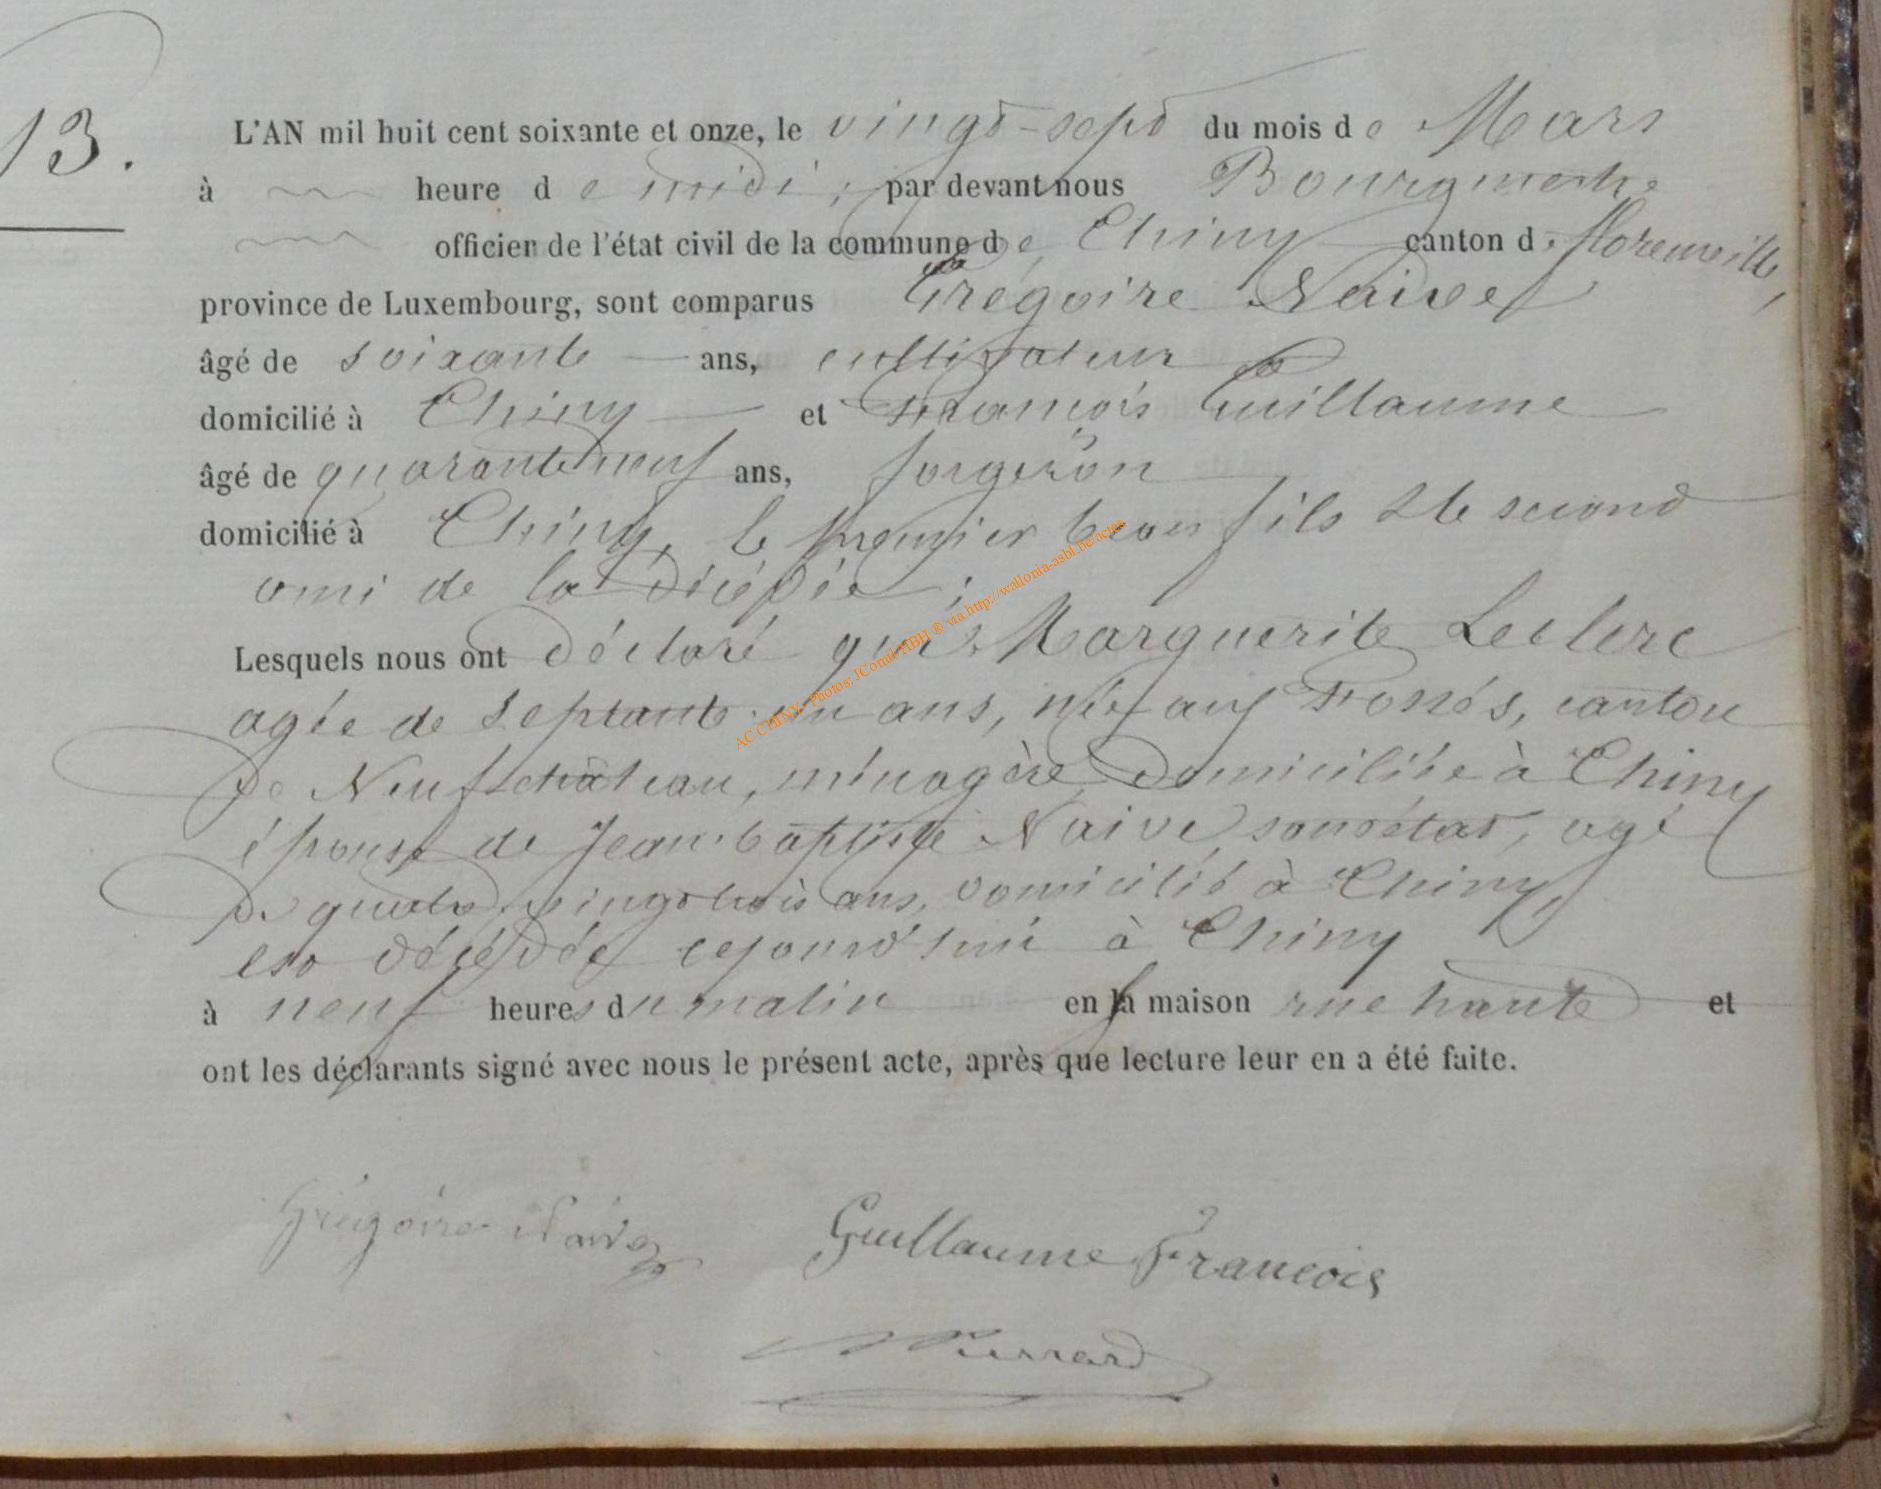 13.
L'AN mil huit cent soixante et onze, le vingt-sept du mois de Mars
à heure de midi, par devant nous Bourgmestre
officier de l'état civil de la commune de Chiny canton de florenville,
province de Luxembourg, sont comparus Grégoire Naive
âgé de soixante ans, cultivateur
domicilié à Chiny et François Guillaume
âgé de quarante neuf ans, forgeron
domicilié à Chiny, le premier beau fils & le second
ami de la décédée ;
Lesquels nous ont déclaré que Marguerite Leclerc
agée de septante-un ans, née aux Fossés, canton
de Neufchâteau, ménagère domiciliée à Chiny
épouse de Jean-baptiste Naive, sans état, agé
de quatre-vingt trois ans, domicilié à Chiny,
est décédée cejourd'hui à Chiny
à neuf heures du matin en sa maison rue haute et
ont les déclarants signé avec nous le présent acte, après que lecture leur en a été faite.
Grégoire Naive Guillaume François
AC CHINY-Photos: JCond/HBH ® via http://wallonia-asbl.be/actes